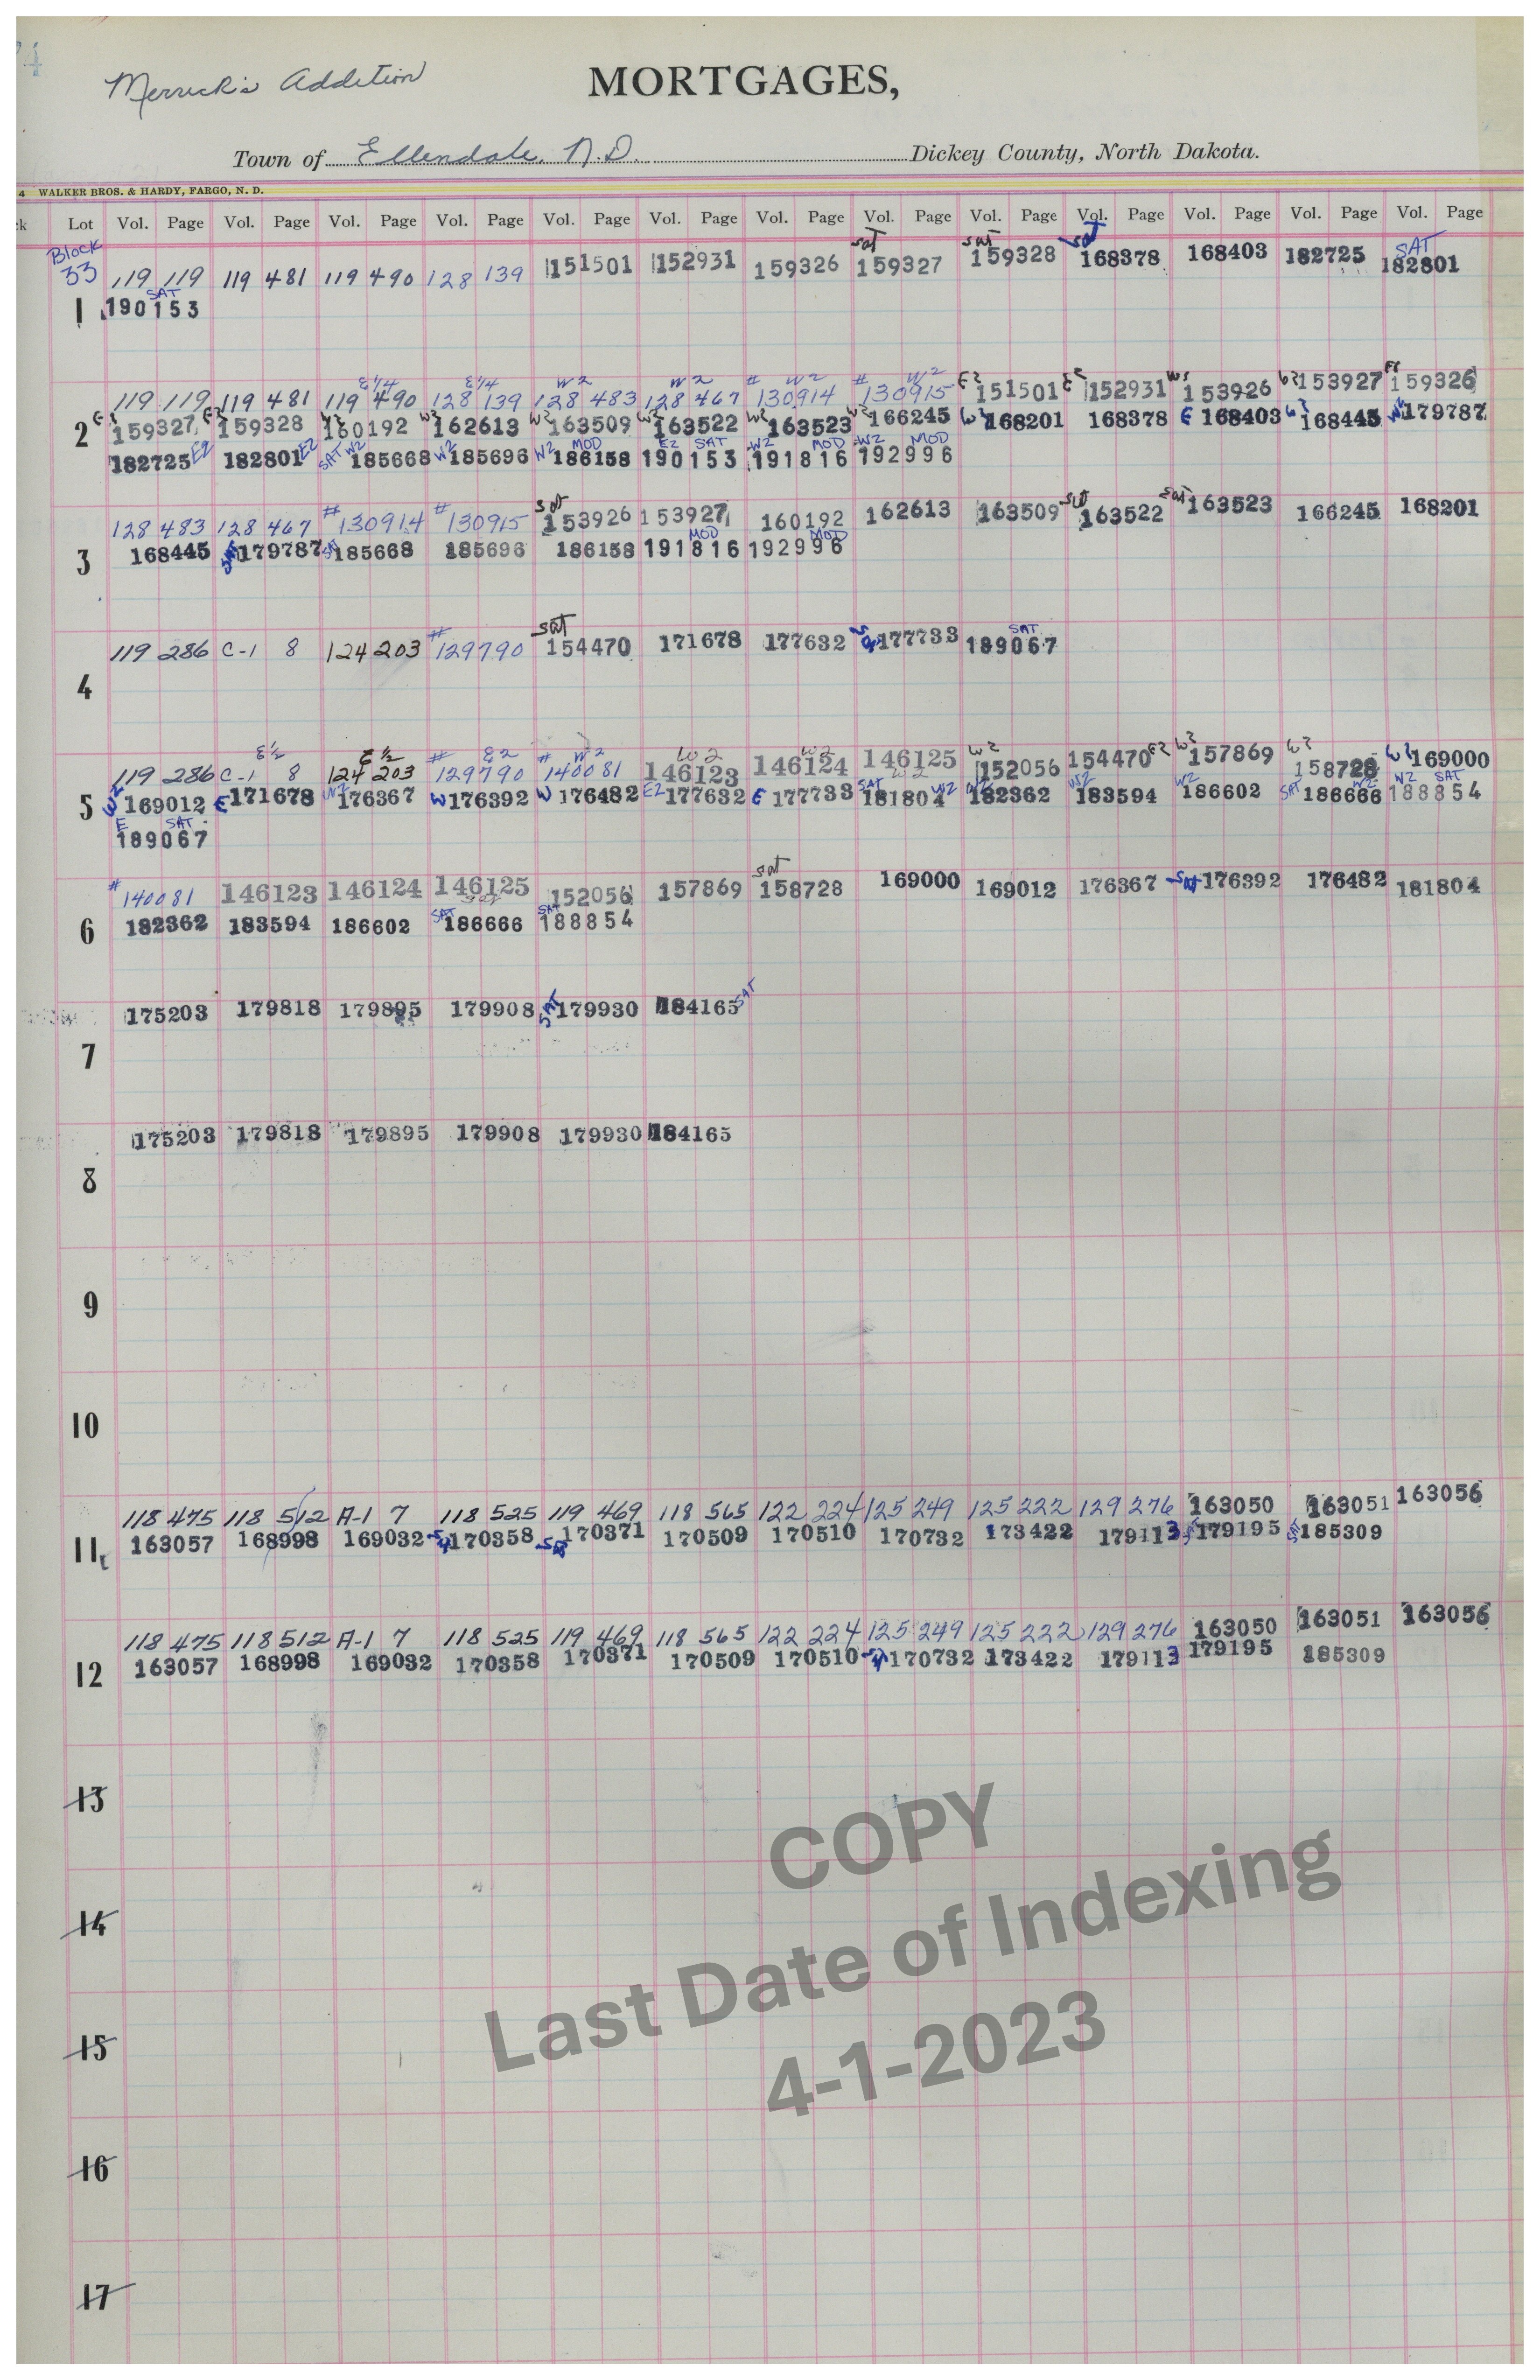 Merrick's Addition
MORTGAGES,
Town of Ellendale, N.D. Dickey County, North Dakota.
4 WALKER BROS. & HARDY, FARGO, N. D.
Lot Vol. Page Vol. Page Vol. Page Vol. Page Vol. Page Vol. Page Vol. Page Vol. Page Vol. Page Vol. Page Vol. Page Vol. Page Vol. Page
Block
33
sat sat sat SAT
119 119 119 481 119 490 128 139 151501 152931 159326 159327 159328 168378 168403 182725 182801
SAT
1 190153
E 1/4 E 1/4 W2 W2 # W2 # W2
119 119 119 481 119 490 128 139 128 483 128 467 130914 130915 E2 151501 E2 152931 W2 153926 W2 153927 E2 159326
2 E2 159327 E2 159328 W2 160192 W2 162613 W2 163509 W2 163522 W2 163523 W2 166245 W2 168201 168378 E 168403 W2 168445 179787
MOD E2 SAT W2 MOD W2 MOD
182725 E2 182801 E2 SAT W2 185668 W2 185696 W2 186158 190153 191816 192996
sat sat sat
128 483 128 467 # 130914 # 130915 153926 153927 160192 162613 163509 163522 163523 166245 168201
MOD MOD
3 168445 SAT 179787 SAT 185668 185696 186158 191816 192996
sat SAT
119 286 C-1 8 124 203 # 129790 154470 171678 177632 Sat 177733 189067
4
E 1/2 E 1/2 # E2 # W2 W2 W2 W2
119 286 C-1 8 124 203 129790 140081 146123 146124 146125 152056 154470 E2 W2 157869 W2 158728 W2 169000
W2 SAT W2 W2 W2 W2 W2 SAT
5 W2 169012 E 171678 W2 176367 W 176392 W 176482 E2 177632 E 177733 181804 W2 182362 183594 186602 SAT 186666 188854
E SAT
189067
sat
# 140081 146123 146124 146125 152056 157869 158728 169000 169012 176367 Sat 176392 176482 181804
SAT SAT
6 182362 183594 186602 186666 188854
175203 179818 179895 179908 SAT 179930 184165 SAT
7
175203 179818 179895 179908 179930 184165
8
9
10
118 475 118 512 A-1 7 118 525 119 469 118 565 122 224 125 249 125 222 129 276 163050 163051 163056
11 163057 168998 169032 Sat 170358 Sat 170371 170509 170510 170732 173422 179113 Sat 179195 Sat 185309
118 475 118 512 A-1 7 118 525 119 469 118 565 122 224 125 249 125 222 129 276 163050 163051 163056
12 163057 168998 169032 170358 170371 170509 170510 Sat 170732 173422 179113 179195 185309
13
14
15
16
17
COPY
Last Date of Indexing
4-1-2023